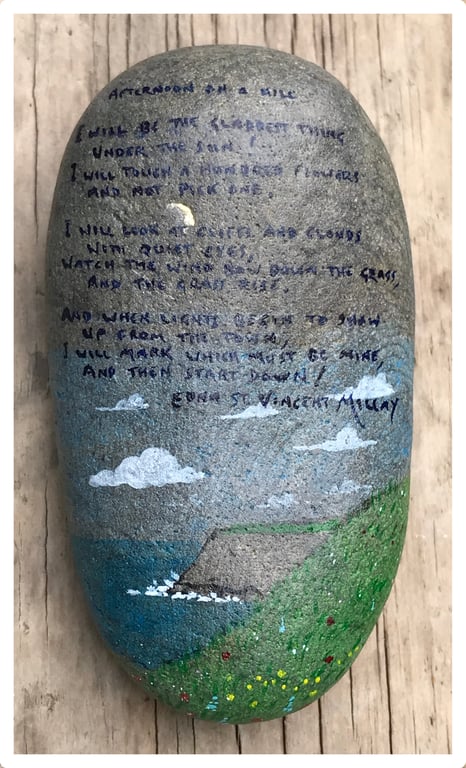 AFTERNOON ON A HILL
I WILL BE THE GLADDEST THING
UNDER THE SUN!
I WILL TOUCH A HUNDRED FLOWERS
AND NOT PICK ONE.
I WILL LOOK AT CLIFFS AND CLOUDS
WITH QUIET EYES,
WATCH THE WIND BOW DOWN THE GRASS,
AND THE GRASS RISE.
AND WHEN LIGHTS BEGIN TO SHOW
UP FROM THE TOWN,
I WILL MARK WHICH MUST BE MINE,
AND THEN START DOWN!
EDNA ST VINCENT MILLAY